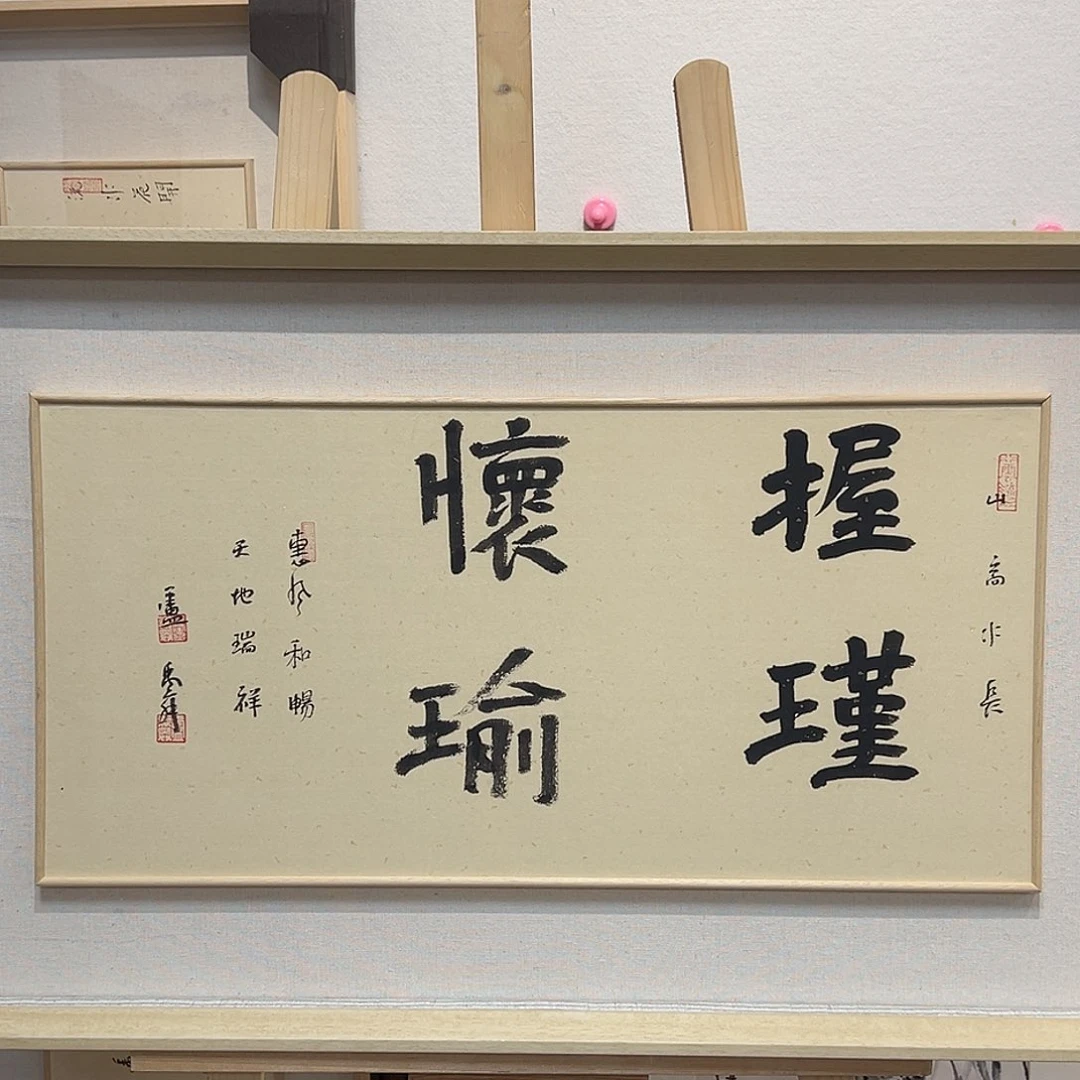 山高水長
握瑾
懷瑜
惠風和暢
天地瑞祥
開花水